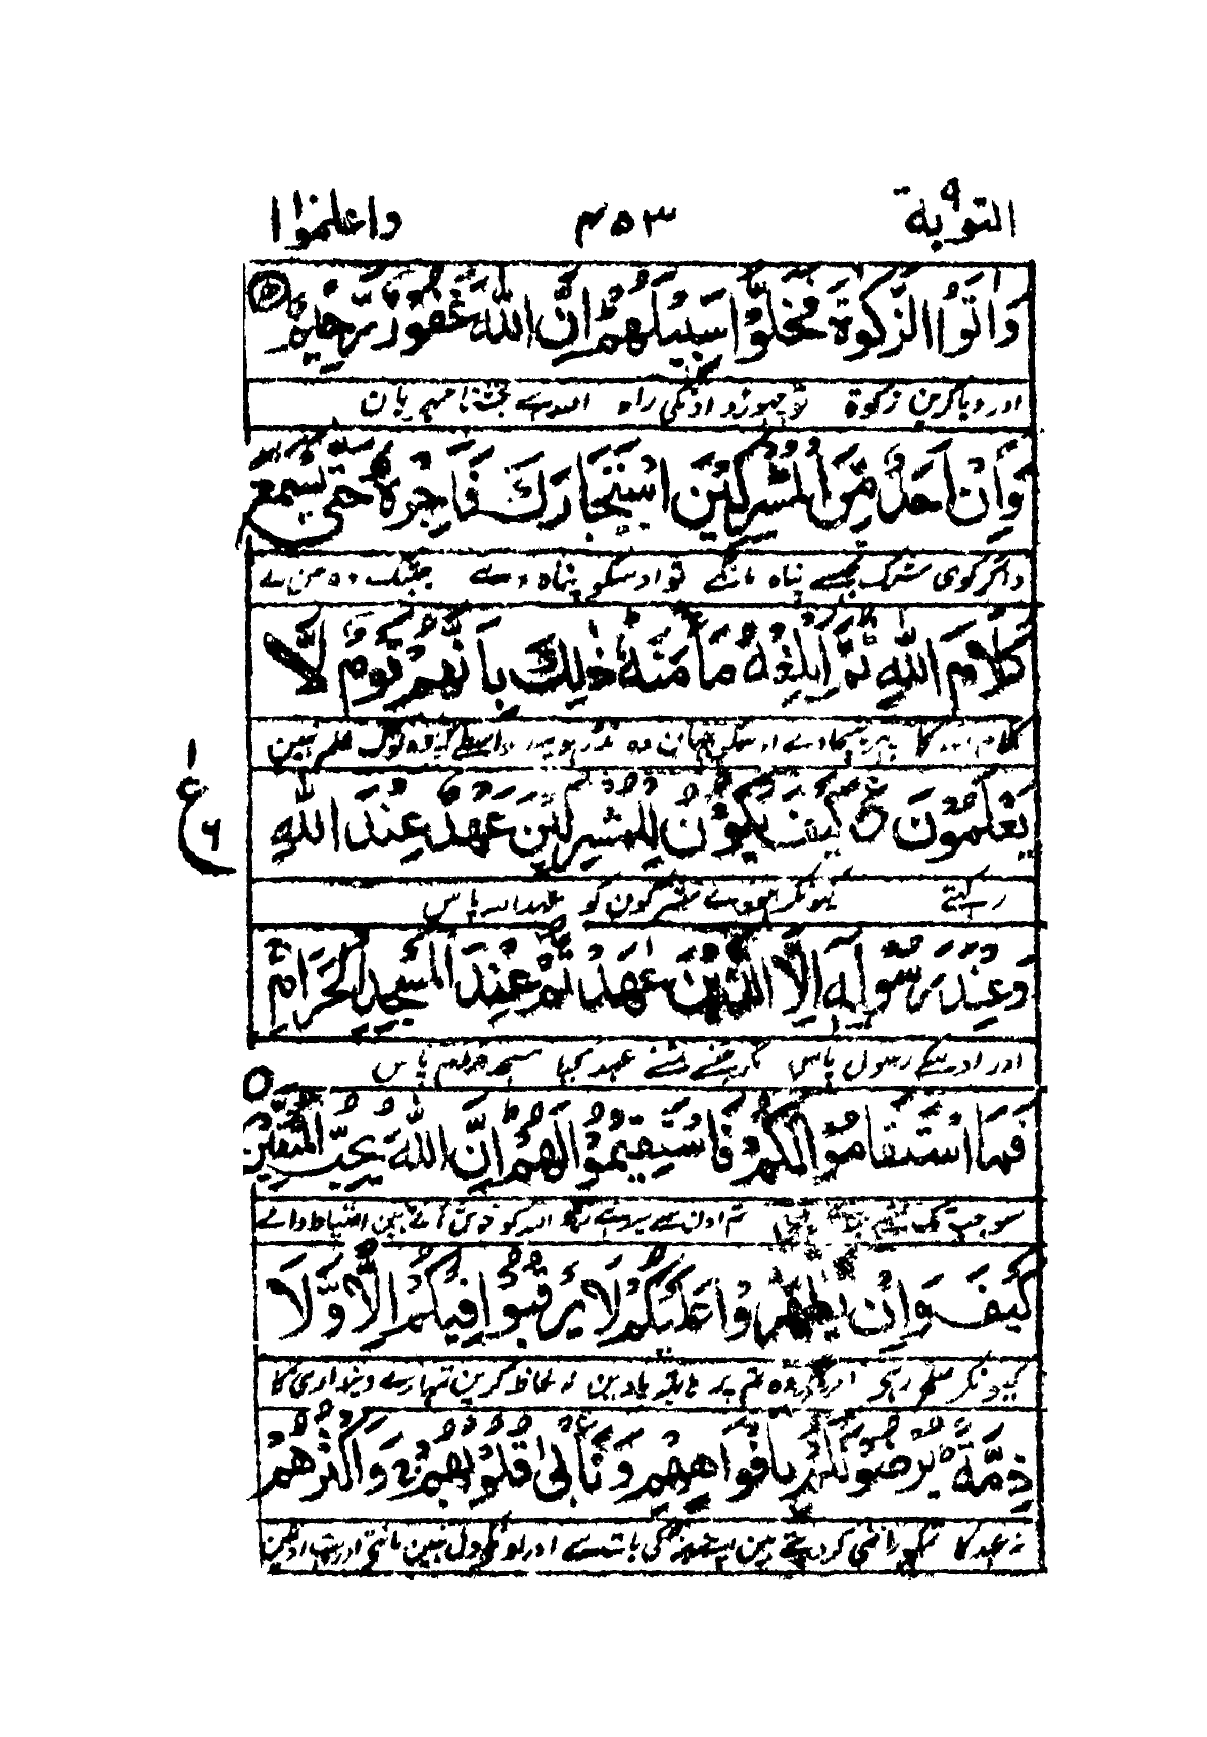 التوبة ٩ ٣٥٣ واعلموا
وَاٰتَوُا الزَّكٰوةَ فَخَلُّوْا سَبِيْلَهُمْ ؕ اِنَّ اللّٰهَ غَفُوْرٌ رَّحِيْمٌ
اور دیا کرین زکوٰة تو چھوڑدو اونکی راہ اللہ ہے بخشتا مہربان
وَاِنْ اَحَدٌ مِّنَ الْمُشْرِكِيْنَ اسْتَجَارَكَ فَاَجِرْهُ حَتّٰى يَسْمَعَ
واگر کوی مشرک تجھسے پناہ مانگے تو اوسکو پناہ دے جبتک وہ سن لے
كَلَامَ اللّٰهِ ثُمَّ اَبْلِغْهُ مَاْمَنَهٗ ؕ ذٰلِكَ بِاَنَّهُمْ قَوْمٌ لَّا
کلام اللہ کا پھر پہنچادے اوسکو جہان وہ نڈر ہو یہہ واسطے کہ وہ لوگ علم نہین
يَعْلَمُوْنَ ع كَيْفَ يَكُوْنُ لِلْمُشْرِكِيْنَ عَهْدٌ عِنْدَ اللّٰهِ
رکہتے کیونکر ہووے مشرکون کو عہد اللہ پاس
وَعِنْدَ رَسُوْلِهٖ اِلَّا الَّذِيْنَ عٰهَدْتُّمْ عِنْدَ الْمَسْجِدِ الْحَرَامِ ج
اور اوسکے رسول پاس مگر جنسے تمنے عہد کیا مسجد حرام پاس
فَمَا اسْتَقَامُوْا لَكُمْ فَاسْتَقِيْمُوْا لَهُمْ ؕ اِنَّ اللّٰهَ يُحِبُّ الْمُتَّقِيْنَ
سو جب تک تم اون سے سیدھے رہو اللہ کو خوش آتے ہین احتیاط والے
كَيْفَ وَاِنْ يَّظْهَرُوْا عَلَيْكُمْ لَا يَرْقُبُوْا فِيْكُمْ اِلًّا وَّلَا
کیونکر صلح رہے اور اگر وہ تم پر ہاتھ پاوین نہ لحاظ کرین تمہارے دینداری کا
ذِمَّةً ؕ يُرْضُوْنَكُمْ بِاَفْوَاهِهِمْ وَتَاْبٰى قُلُوْبُهُمْ ۚ وَاَكْثَرُهُمْ
نہ عہد کا تمکو راضی کردیتے ہین اپنے مونہہ کی بات سے اور اونکے دل نہین مانتے اور بہت اونمین
١
ع
٦